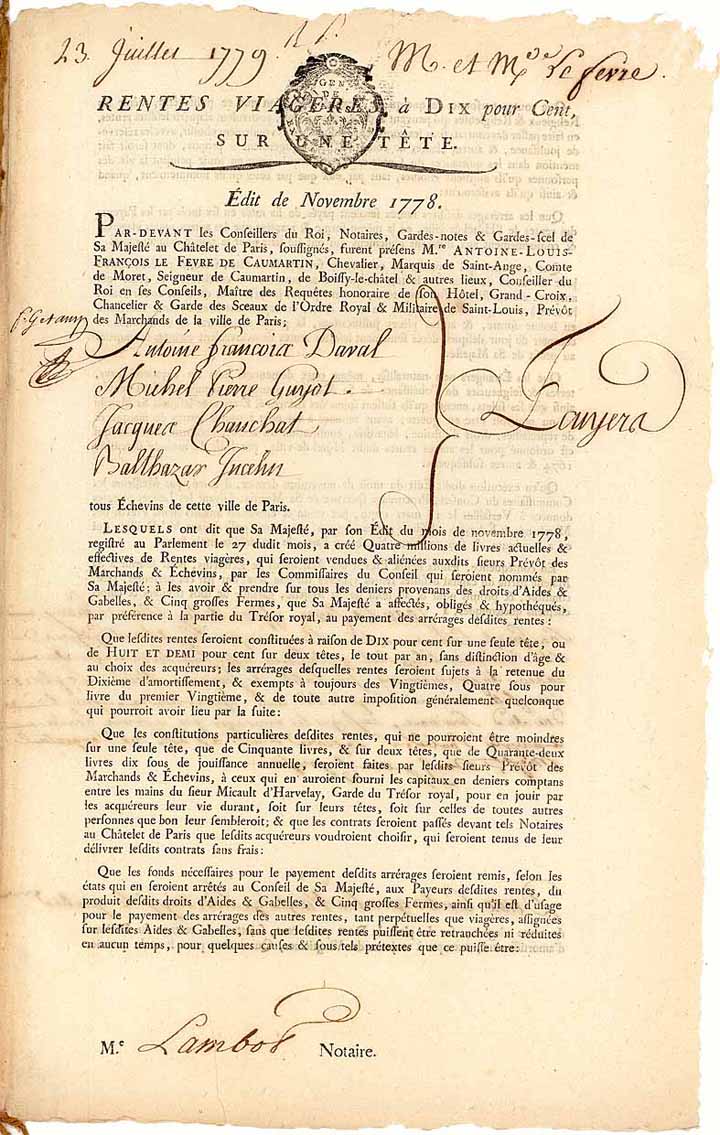 23 Juillet 1779. M. et Mde Le fevre.
RENTES VIAGÈRES, à DIX pour Cent,
SUR UNE TÊTE.
Édit de Novembre 1778.
PAR-DEVANT les Conseillers du Roi, Notaires, Gardes-notes & Gardes-scel de
Sa Majesté au Châtelet de Paris, soussignés, furent présens M.re ANTOINE-LOUIS-
FRANÇOIS LE FEVRE DE CAUMARTIN, Chevalier, Marquis de Saint-Ange, Comte
de Moret, Seigneur de Caumartin, de Boissy-le-châtel & autres lieux, Conseiller du
Roi en ses Conseils, Maître des Requêtes honoraire de son Hôtel, Grand-Croix,
Chancelier & Garde des Sceaux de l'Ordre Royal & Militaire de Saint-Louis, Prévôt
des Marchands de la ville de Paris;
Antoine francois Daval
Michel Pierre Guyot.
Jacques Chauchat
Balthazar Incelin
Ecuyers
tous Échevins de cette ville de Paris.
LESQUELS ont dit que Sa Majesté, par son Édit du mois de novembre 1778,
registré au Parlement le 27 dudit mois, a créé Quatre millions de livres actuelles &
effectives de Rentes viagères, qui seroient vendues & aliénées auxdits sieurs Prévôt des
Marchands & Échevins, par les Commissaires du Conseil qui seroient nommés par
Sa Majesté; à les avoir & prendre sur tous les deniers provenans des droits d'Aides &
Gabelles, & Cinq grosses Fermes, que Sa Majesté a affectés, obligés & hypothéqués,
par préférence à la partie du Trésor royal, au payement des arrérages desdites rentes:
Que lesdites rentes seroient constituées à raison de DIX pour cent sur une seule tête, ou
de HUIT ET DEMI pour cent sur deux têtes, le tout par an, sans distinction d'âge &
au choix des acquéreurs; les arrérages desquelles rentes seroient sujets à la retenue du
Dixième d'amortissement, & exempts à toujours des Vingtièmes, Quatre sous pour
livre du premier Vingtième, & de toute autre imposition généralement quelconque
qui pourroit avoir lieu par la suite:
Que les constitutions particulières desdites rentes, qui ne pourroient être moindres
sur une seule tête, que de Cinquante livres, & sur deux têtes, que de Quarante-deux
livres dix sous de jouissance annuelle, seroient faites par lesdits sieurs Prévôt des
Marchands & Échevins, à ceux qui en auroient fourni les capitaux en deniers comptans
entre les mains du sieur Micault d'Harvelay, Garde du Trésor royal, pour en jouir par
les acquéreurs leur vie durant, soit sur leurs têtes, soit sur celles de toutes autres
personnes que bon leur sembleroit; & que les contrats seroient passés devant tels Notaires
au Châtelet de Paris que lesdits acquéreurs voudroient choisir, qui seroient tenus de leur
délivrer lesdits contrats sans frais:
Que les fonds nécessaires pour le payement desdits arrérages seroient remis, selon les
états qui en seroient arrêtés au Conseil de Sa Majesté, aux Payeurs desdites rentes, du
produit desdits droits d'Aides & Gabelles, & Cinq grosses Fermes, ainsi qu'il est d'usage
pour le payement des arrérages des autres rentes, tant perpétuelles que viagères, assignées
sur lesdites Aides & Gabelles, sans que lesdites rentes puissent être retranchées ni réduites
en aucun temps, pour quelques causes & sous tels prétextes que ce puisse être:
M.e Lambot Notaire.